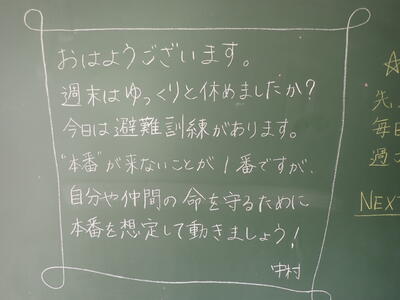 おはようございます。
週末はゆっくりと休めましたか？
今日は避難訓練があります。
"本番"が来ないことが1番ですが、
自分や仲間の命を守るために
本番を想定して動きましょう！
中村
☆
先
毎日
過ご
NEX